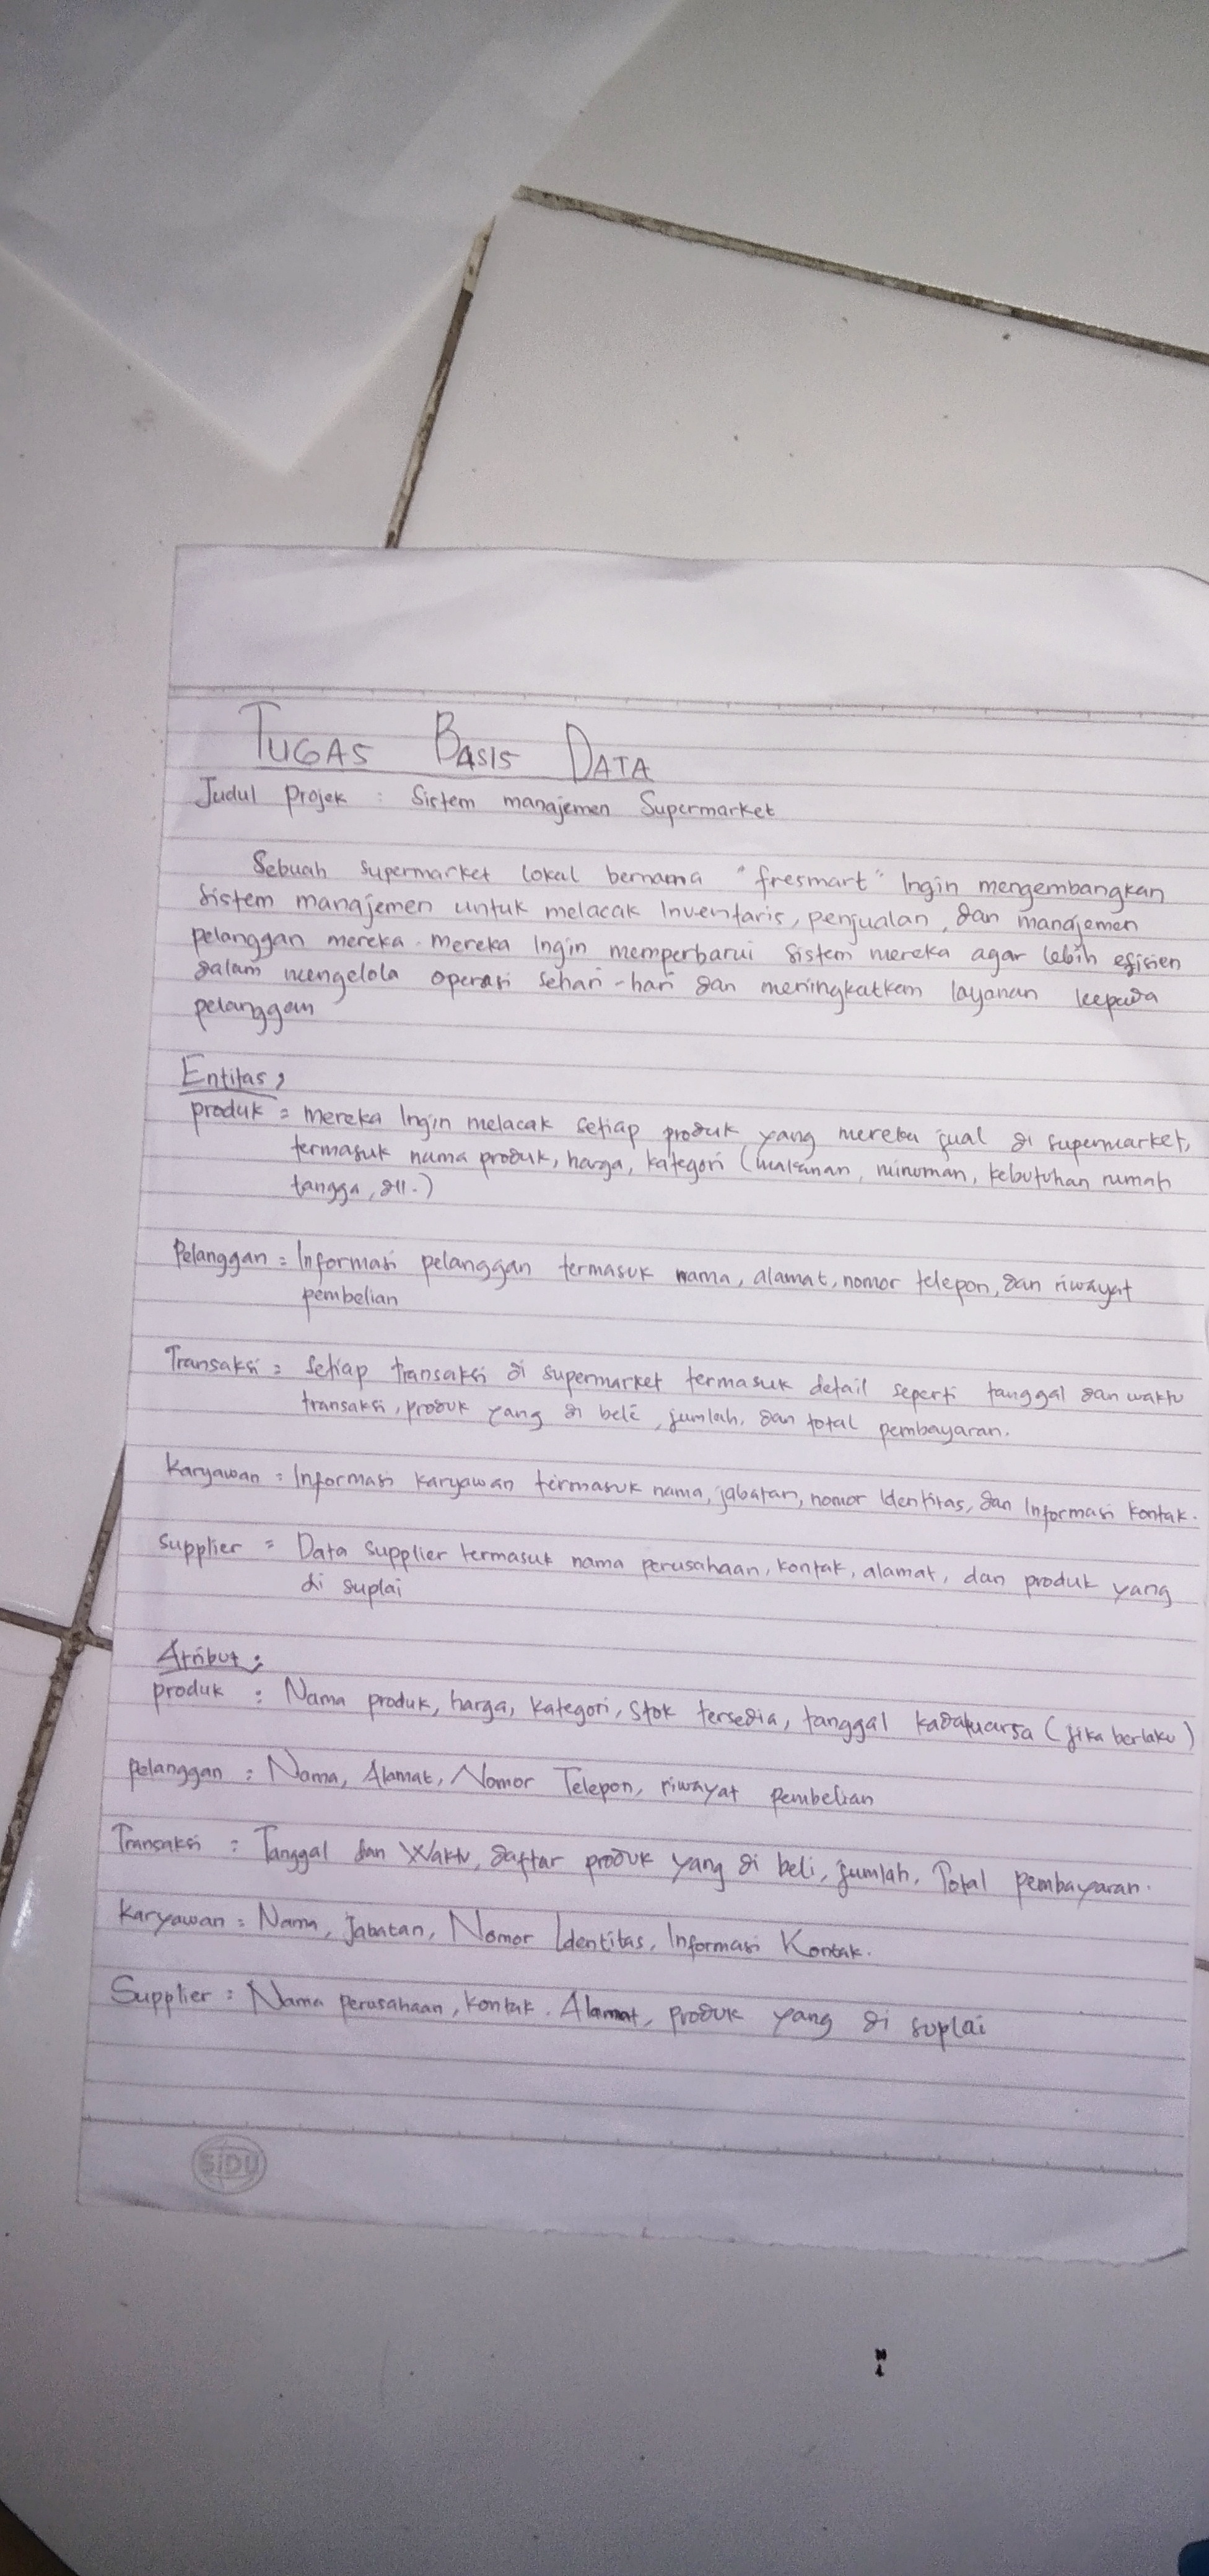 TUGAS BASIS DATA
Judul projek : Sistem manajemen Supermarket
Sebuah supermarket lokal bernama "fresmart" Ingin mengembangkan
sistem manajemen untuk melacak Inventaris, penjualan, dan manajemen
pelanggan mereka. mereka Ingin memperbarui sistem mereka agar lebih efisien
dalam mengelola operasi sehari-hari dan meningkatkan layanan kepada
pelanggan
Entitas,
produk = mereka Ingin melacak setiap produk yang mereka jual di supermarket,
termasuk nama produk, harga, kategori (makanan, minuman, kebutuhan rumah
tangga, dll.)
Pelanggan = Informasi pelanggan termasuk nama, alamat, nomor telepon, dan riwayat
pembelian
Transaksi = setiap transaksi di supermarket termasuk detail seperti tanggal dan waktu
transaksi, produk yang di beli, jumlah, dan total pembayaran.
Karyawan = Informasi karyawan termasuk nama, jabatan, nomor Identitas, dan Informasi kontak.
supplier = Data supplier termasuk nama perusahaan, kontak, alamat, dan produk yang
di suplai
Atribut ;
produk : Nama produk, harga, kategori, Stok tersedia, tanggal kadaluarsa (jika berlaku)
pelanggan : Nama, Alamat, Nomor Telepon, riwayat pembelian
Transaksi : Tanggal dan Waktu, daftar produk yang di beli, jumlah, Total pembayaran.
Karyawan : Nama, jabatan, Nomor Identitas, Informasi Kontak.
Supplier : Nama perusahaan, kontak. Alamat, produk yang di suplai
SiDU